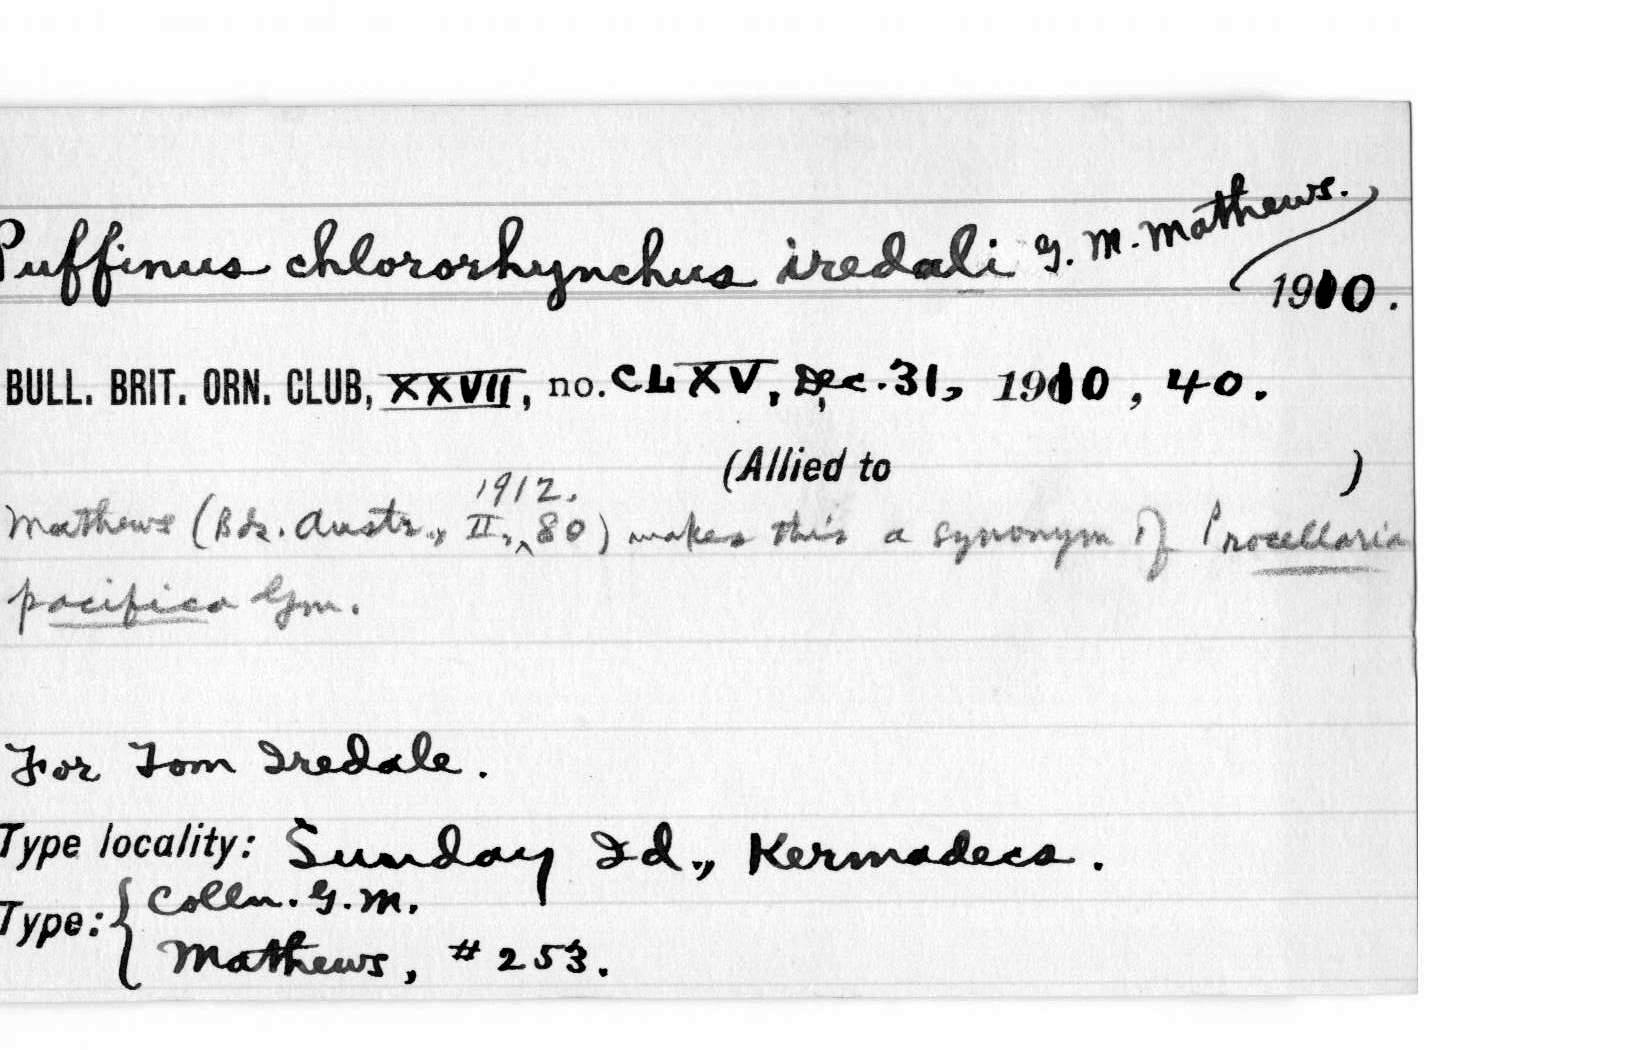 Puffinus chlororhynchus iredali G. M. Mathews.
1910.
BULL. BRIT. ORN. CLUB, XXVII, no. CLXV, Dec. 31, 1910, 40.
(Allied to )
1912.
Mathews (Bds. Austr., II, ‸ 80) makes this a synonym of Procellaria
pacifica Gm.
For Tom Iredale.
Type locality: Sunday Id., Kermadecs.
Type: { Colln. G. M.
Mathews, # 253.